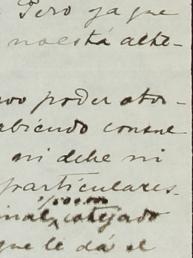 Pero ya que
no está alte-
vo poder otor-
abiendo consul
ni debe ni
particulares.
inal, cotejado
que le dá el